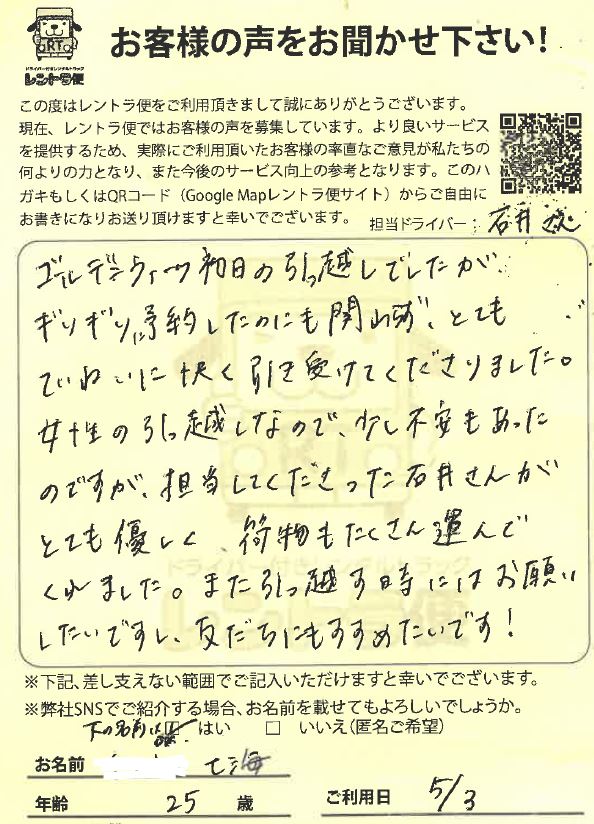 RT
ドライバー付きレンタルトラック
レントラ便
お客様の声をお聞かせ下さい！
この度はレントラ便をご利用頂きまして誠にありがとうございます。
現在、レントラ便ではお客様の声を募集しています。より良いサービス
を提供するため、実際にご利用頂いたお客様の率直なご意見が私たちの
何よりの力となり、また今後のサービス向上の参考となります。このハ
ガキもしくはQRコード（Google Mapレントラ便サイト）からご自由に
お書きになりお送り頂けますと幸いでございます。
担当ドライバー：石井
ゴールデンウィーク初日の引っ越しでしたが、
ギリギリに予約したのにも関わらず、とても
ていねいに快く引き受けてくださりました。
女性の引っ越しなので、少し不安もあった
のですが、担当してくださった石井さんが
とても優しく、荷物もたくさん運んで
くれました。また引っ越す時にはお願い
したいですし、友だちにもすすめたいです！
ドライバー付きレンタルトラック
レントラ便
※下記、差し支えない範囲でご記入いただけますと幸いでございます。
※弊社SNSでご紹介する場合、お名前を載せてもよろしいでしょうか。
下の名前は はい □ いいえ（匿名ご希望）
お名前 七海
年齢 25 歳 ご利用日 5/3